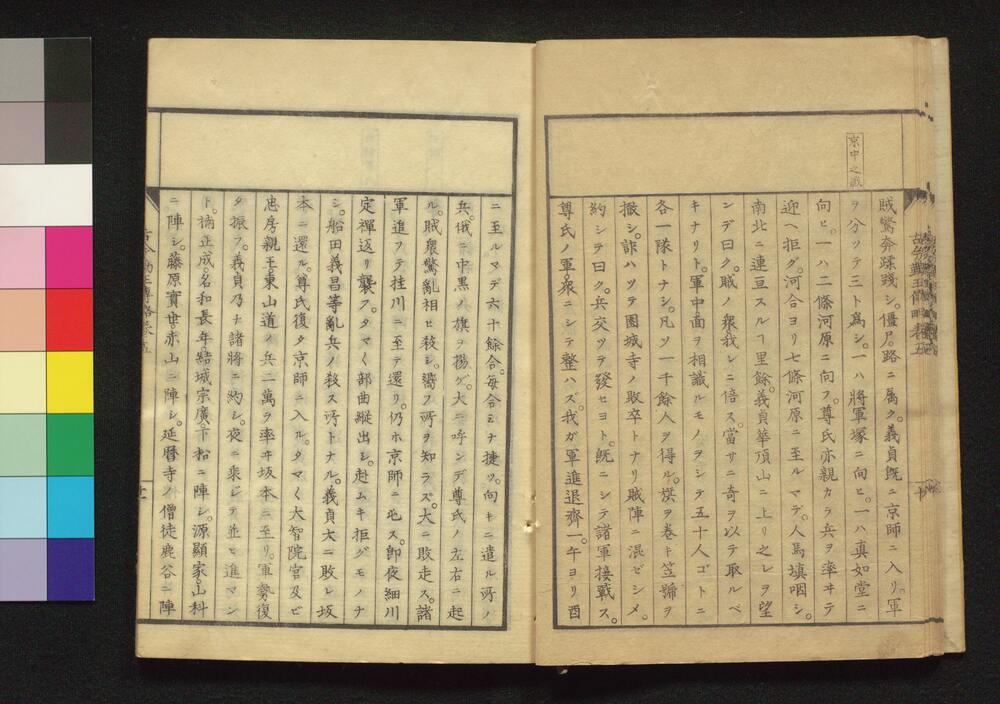 京中之戰
賊驚奔蹂踐シ。僵尸。路ニ属ク。義貞旣ニ京師ニ入リ。軍
ヲ分ツテ三ト爲シ。一ハ將軍塚ニ向ヒ。一ハ真如堂ニ
向ヒ。一ハ二條河原ニ向フ。尊氏亦親カラ兵ヲ率ヰテ
迎ヘ拒グ。河合ヨリ七條河原ニ至ルマデ。人馬填咽シ。
南北ニ連亘スルヿ里餘。義貞華頂山ニ上リ之レヲ望
ンデ曰ク。賊ノ衆。我レニ倍ス。當サニ奇ヲ以テ取ルベ
キナリト。軍中。面ヲ相識ルモノヲシテ五十人ゴトニ
各一隊トナシ。凡ソ一千餘人ヲ得ル。旗ヲ卷キ笠號ヲ
撤シ。詐ハツテ園城寺ノ敗卒トナリ賊陣ニ混ゼシメ。
約シテ曰ク。兵交ツテ發セヨト。旣ニシテ諸軍接戰ス。
尊氏ノ軍。衆ニシテ整ハズ。我ガ軍進退齊一。午ヨリ酉
ニ至ルマデ六十餘合。每合ミナ捷ツ。向キニ遣ル所ノ
兵。俄ニ中黒ノ旗ヲ揚ゲ。大ニ呼ンデ尊氏ノ左右ニ起
ル。賊衆驚亂相ヒ殺シ。嚮フ所ヲ知ラズ。大ニ敗走ス。諸
軍追フテ桂川ニ至テ還リ。仍ホ京師ニ屯ス。即夜細川
定禪返リ襲フ。タマ〱部曲縱出シ。赴ムキ拒グモノナ
シ。船田義昌等亂兵ノ殺ス所トナル。義貞大ニ敗レ坂
本ニ還ル。尊氏復タ京師ニ入ル。タマ〱大智院宮及ビ
忠房親王。東山道ノ兵二萬ヲ率ヰ坂本ニ至リ。軍勢復
タ振フ。義貞乃ナ諸將ニ約シ。夜ニ乘シテ並ビ進マン
ト。楠正成。名和長年。結城宗廣。下松ニ陣シ。源顯家。山科
ニ陣シ。藤原實世。赤山ニ陣シ。延暦寺ノ僧徒鹿谷ニ陣